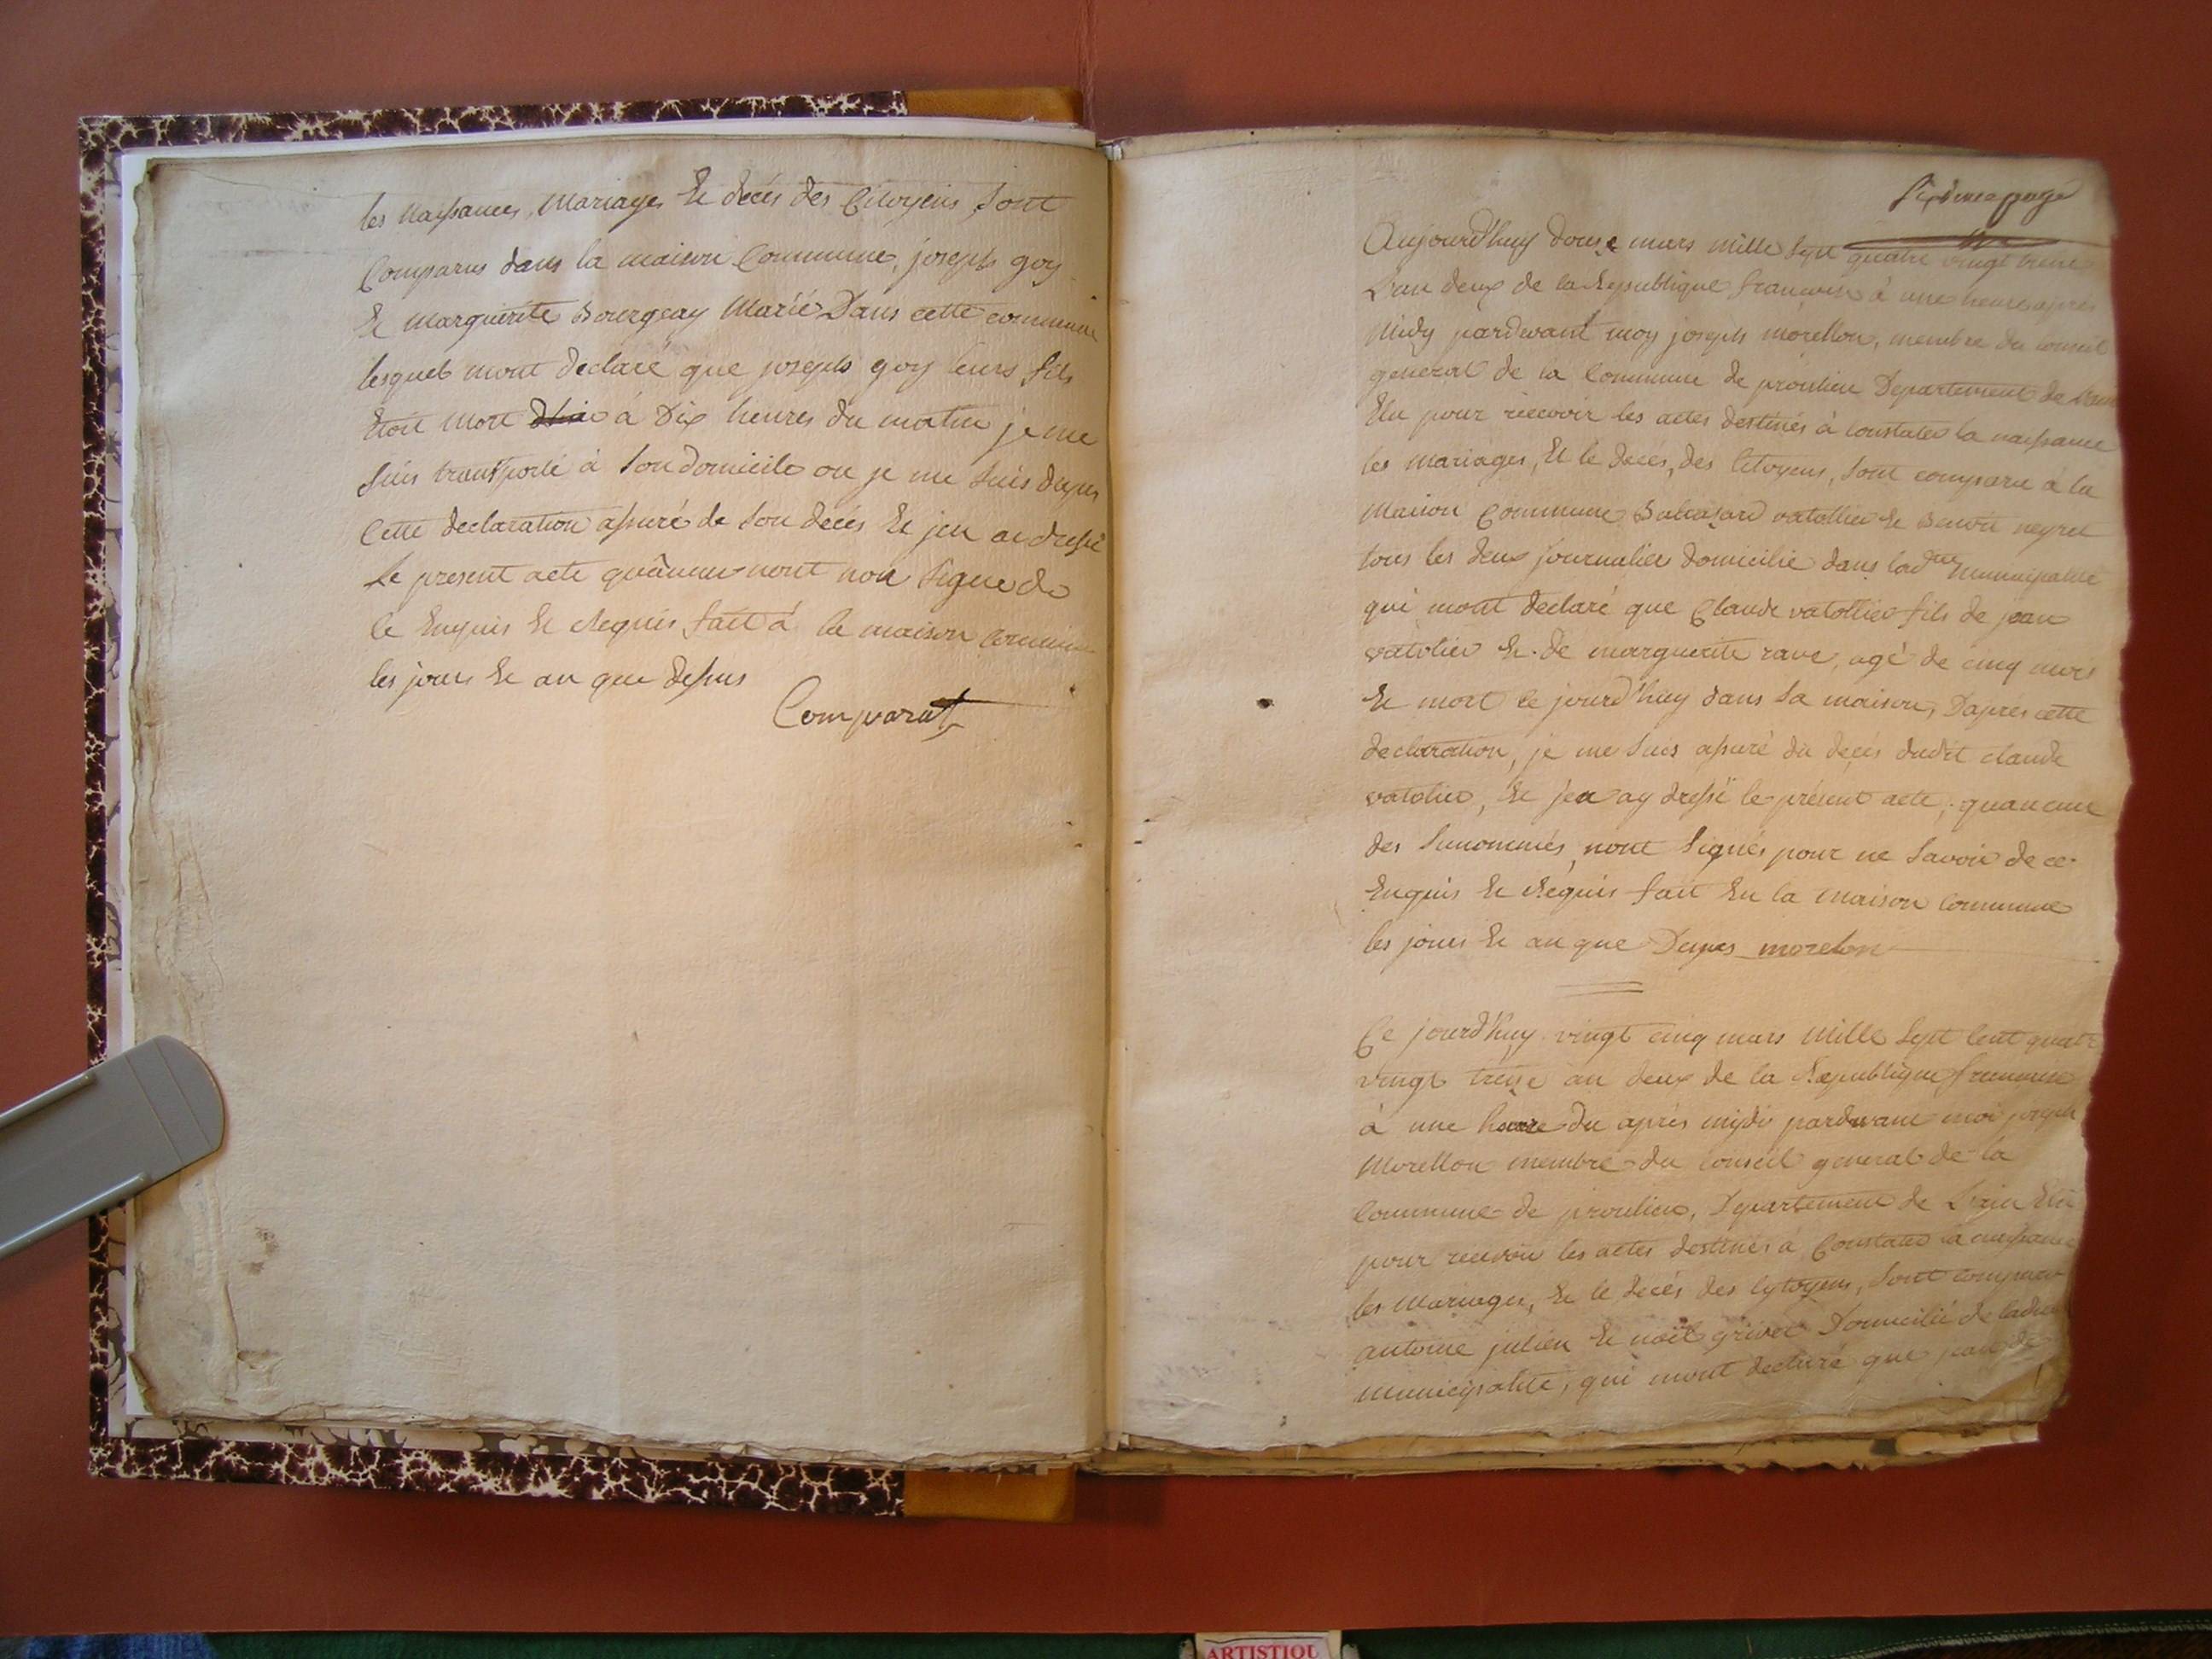 les Naissances, Mariages Et decés des Citoyens Sont
Comparus dans la maison Commune, joseph goy
Et Marguerite Bourgeay Marié Dans cette commune
lesquels mont declaré que joseph goy leurs fils
Etoit Mort à Dix heures du matin je me
Suis transporté à Son domicile ou je me Suis dapres
Cette declaration assuré de Son decés Et jen ai dressé
Le present acte quâucun nont non Signe de
Ce Enquis Et Requis fait à la maison Commune
les jours Et an que dessus
Comparat
Sixieme page
Aujourd'huy douze mars Mille Sept quatre vingt treize
L'an deux de la Republique francoise à une heure apres
Midy pardevant moy joseph morellon, membre du conseil
general de la Commune de proulieu Departement de Lain
Elu pour recevoir les actes destinés à Constater la naissance
les mariages, Et le decés, des Citoyens, Sont comparu à la
Maison Commune, Balcazard vatollier Et Benoit neyret
tous les deux journalier domicilie dans ladte municipalité
qui mont declaré que Claude vatollier fils de jean
vatolier Et de marguerite rave, agé de cinq mois
Et mort ce jourd'huy dans Sa maison, D'aprés cette
declaration, je me Suis assuré du decés dudit claude
vatolier, Et jen ay dressé le présent acte, quaucun
des Sunommés, nont Signés pour ne Savoir de ce
Enquis Et Réquis fait En la maison Commune
les jours Et an que Desus morelon
Ce jourd'huy vingt cinq mars Mille Sept Cent quatre
vingt treize an deux de la Republique francoise
à une heure du aprés midi pardevant moi joseph
Morellon membre du Conseil general de la
Commune de proulieu, Departement de L'ain Elu
pour recevoir les actes destinés à Constater la naissance
les Mariages, Et le decés des Cytoyens, Sont comparu
antoine julien Et noël grivet Domicilié de ladte
municipalité, qui mont declaré que jean
ARTISTIQU